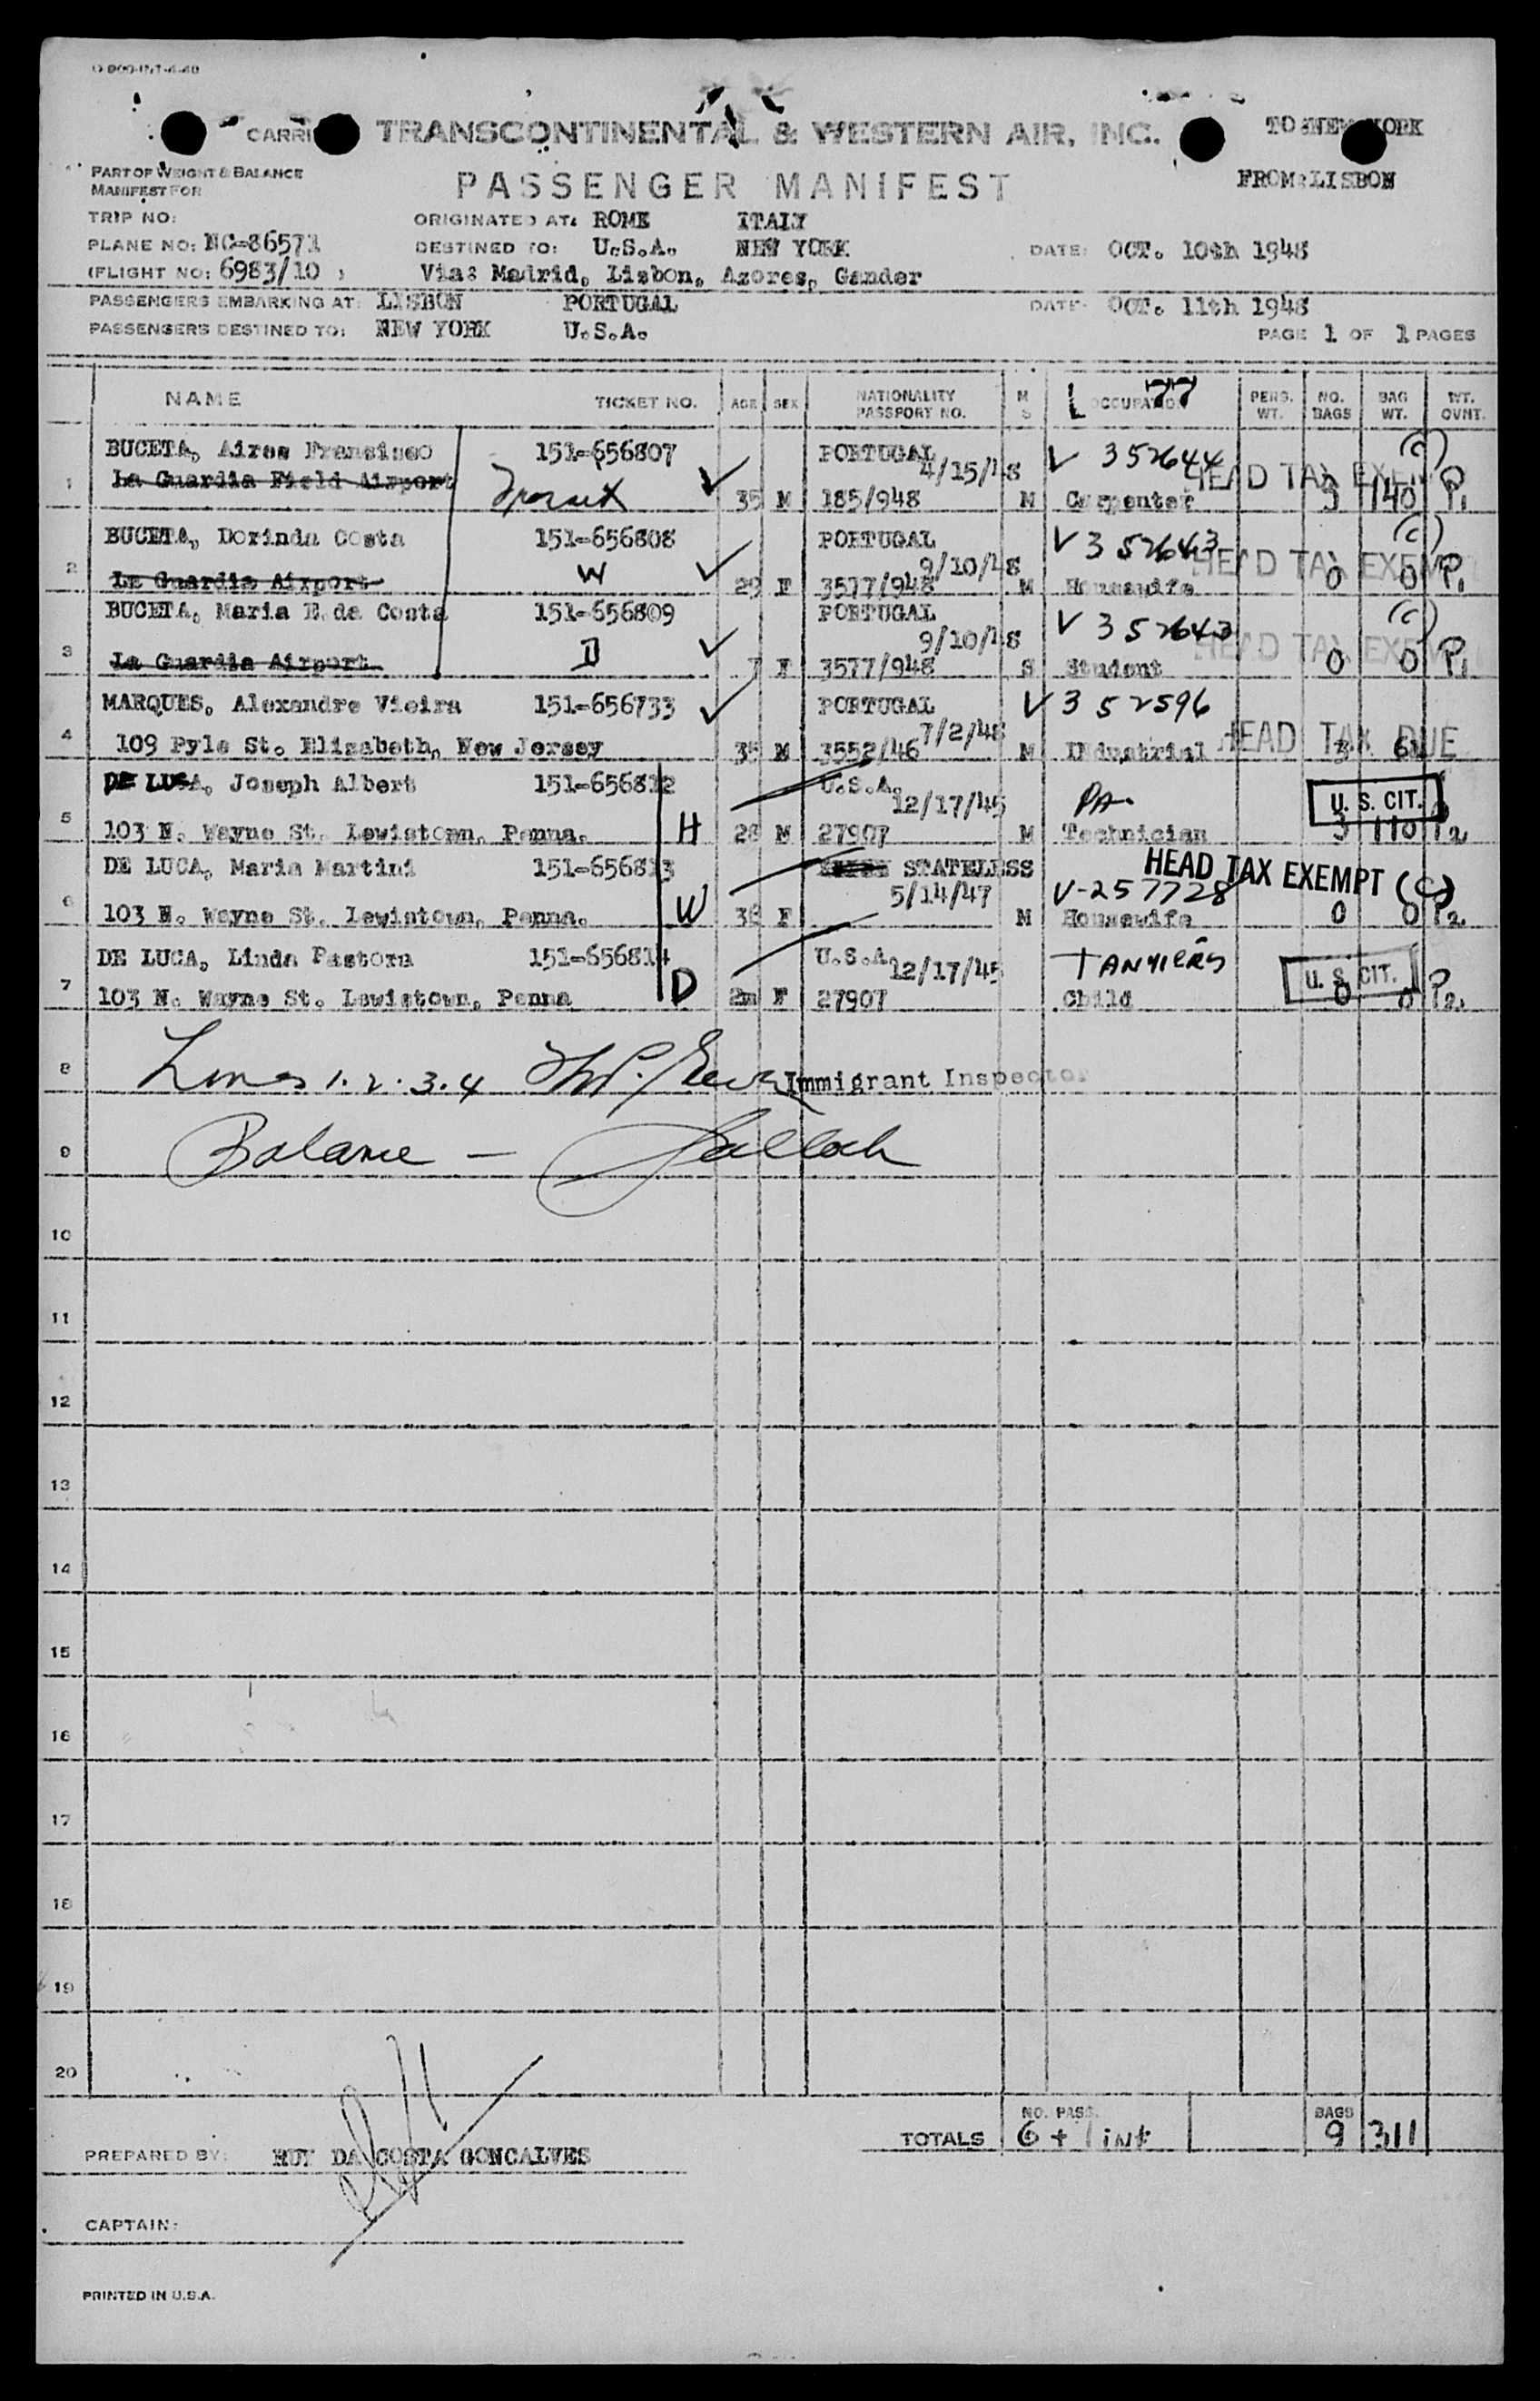 O-800-INT-4-48
TRANSCONTINENTAL & WESTERN AIR, INC.
TO: NEW YORK
PART OF WEIGHT & BALANCE
MANIFEST FOR
PASSENGER MANIFEST
FROM: LISBON
TRIP NO:
ORIGINATED AT: ROME ITALY
PLANE NO: NC-86571
DESTINED TO: U.S.A. NEW YORK
DATE: OCT. 10th 1948
(FLIGHT NO: 6983/10 )
Via: Madrid, Lisbon, Azores, Gander
PASSENGERS EMBARKING AT: LISBON PORTUGAL
DATE: OCT. 11th 1948
PASSENGERS DESTINED TO: NEW YORK U.S.A.
PAGE 1 OF 1 PAGES
NAME TICKET NO. AGE SEX NATIONALITY PASSPORT NO. M S OCCUPATION PERS. WT. NO. BAGS BAG WT. WT. OVNT.
77
BUCETA, Aires Fransisco 151-656807 PORTUGAL 4/15/48 V 352644 (C)
HEAD TAX EXEMP
1 La Guardia Field Airport 35 M 185/948 M Carpenter 3 140 P1
BUCETA, Dorinda Costa 151-656808 PORTUGAL 9/10/48 V 352643 (C)
HEAD TAX EXEM
2 La Guardia Airport W 29 F 3577/948 M Housewife 0 0 P1
BUCETA, Maria E. da Costa 151-656809 PORTUGAL 9/10/48 V 352643 (C)
HEAD TAX EXEM
3 La Guardia Airport D 7 F 3577/948 S Student 0 0 P1
MARQUES, Alexandre Vieira 151-656733 PORTUGAL 7/2/48 V 352596
HEAD TAX DUE
4 109 Pyle St. Elizabeth, New Jersey 35 M 3552/46 M INdustrial 3 61
DE LUCA, Joseph Albert 151-656812 U.S.A. 12/17/45 PA.
U. S. CIT.
5 103 N. Wayne St. Lewistown, Penna. H 28 M 27907 M Technician 3 110 P2
DE LUCA, Maria Martini 151-656813 STATELESS 5/14/47 V-257728
HEAD TAX EXEMPT (C)
6 103 N. Wayne St. Lewistown, Penna. W 38 F M Housewife 0 0 P2
DE LUCA, Linda Pastora 151-656814 U.S.A. 12/17/45 TANYIERS
U. S. CIT.
7 103 N. Wayne St. Lewistown, Penna D 2m F 27907 Child 0 0 P2.
8 Lines 1.2.3.4 Immigrant Inspector
9 Balance —
10
11
12
13
14
15
16
17
18
19
20
TOTALS NO. PASS. 6 + 1 inf BAGS 9 311
PREPARED BY: RUY DA COSTA GONCALVES
CAPTAIN:
PRINTED IN U.S.A.